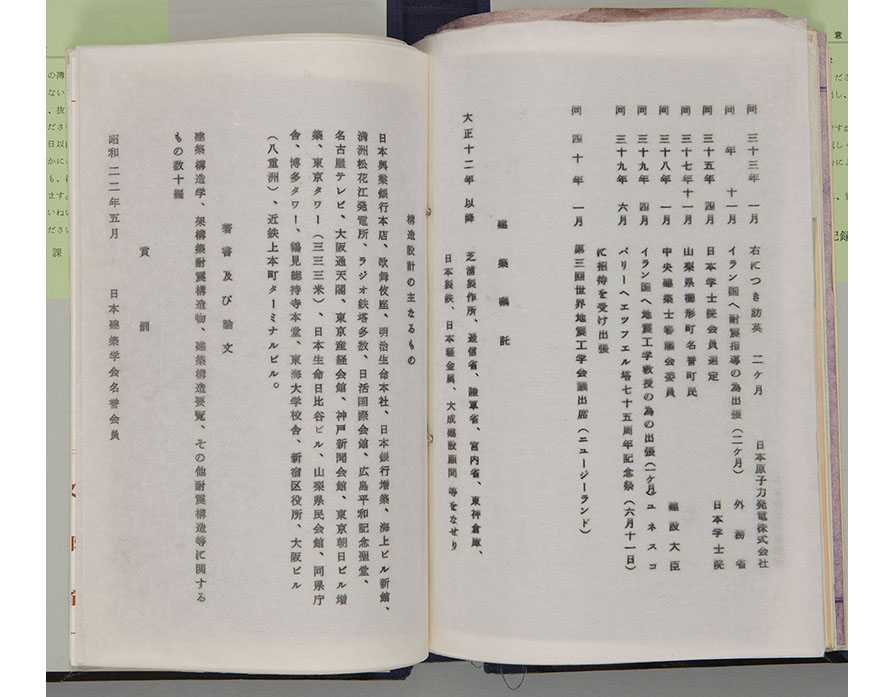 同 三十三年 一月 右につき訪英 二ケ月 日本原子力発電株式会社
同 年 十一月 イラン国へ耐震指導の為出張（二ケ月） 外務省
同 三十五年 四月 日本学士院会員選定 日本学士院
同 三十七年十一月 山梨県御形町名誉町民
同 三十八年 一月 中央建築士審議会委員 建設大臣
同 三十九年 四月 イラン国へ地震工学教授の為の出張（一ケ月）ユネスコ
同 三十九年 六月 パリーへエッフェル塔七十五周年記念祭（六月十一日）
に招待を受け出張
同 四十年 一月 第三回世界地震工学会議出席（ニュージーランド）
建築嘱託
大正十二年 以降 芝浦製作所、逓信省、陸軍省、宮内省、東神倉庫、
日本製鉄、日本軽金属、大成建設顧問 等をなせり
構造設計の主なるもの
日本興業銀行本店、歌舞伎座、明治生命本社、日本銀行増築、海上ビル新館、
満洲松花江発電所、ラジオ鉄塔多数、日活国際会館、広島平和記念聖堂、
名古屋テレビ、大阪通天閣、東京産経会館、神戸新聞会館、東京朝日ビル増
築、東京タワー（三三三米）、日本生命日比谷ビル、山梨県民会館、同県庁
舎、博多タワー、鶴見総持寺本堂、東海大学校舎、新宿区役所、大阪ビル
（八重洲）、近鉄上本町ターミナルビル。
著書及び論文
建築構造学、架構築耐震構造物、建築構造要覧、その他耐震構造等に関する
もの数十編
賞罰
昭和二二年五月 日本建築学会名誉会員